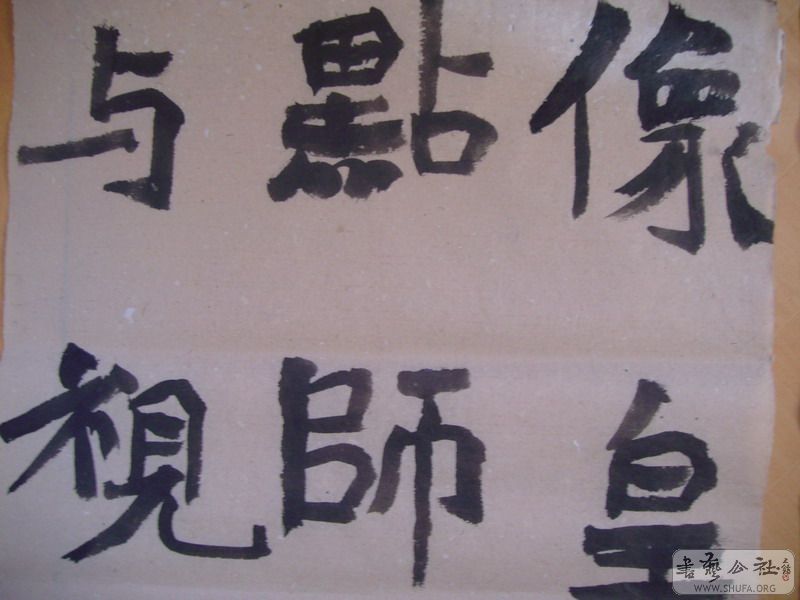 像皇
點師
与視
書藝公社
WWW.SHUFA.ORG